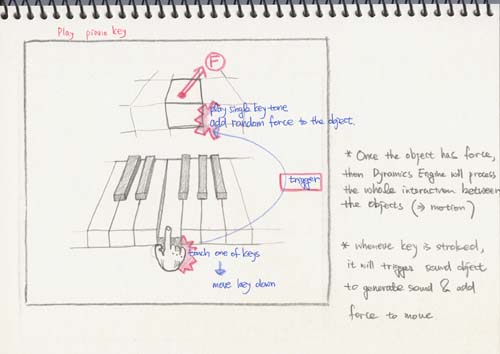 Play piano key
F
play single key tone
add random force to the object.
trigger
touch one of keys
move key down
* Once the object has force,
then Dynamics Engine will process
the whole interaction between
the objects (⇒ motion)
* whenever key is stroked,
it will trigger sound object
to generate sound & add
force to move.